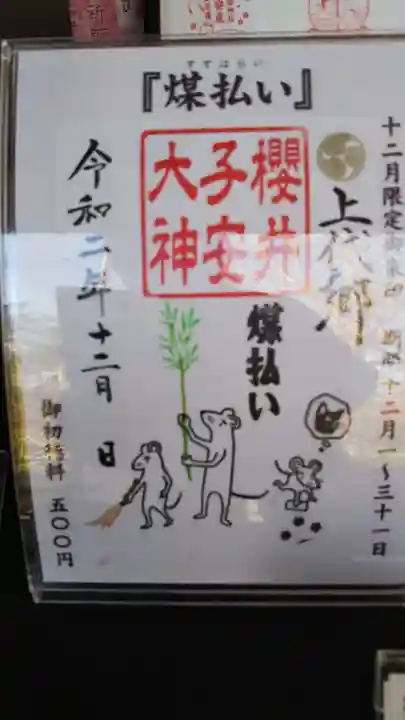 すすはらい
『煤払い』
十二月限定御朱印
十二月一～三十一日
櫻井
子安
大神
煤払い
令和二年十二月 日
御初穂料 五〇〇円